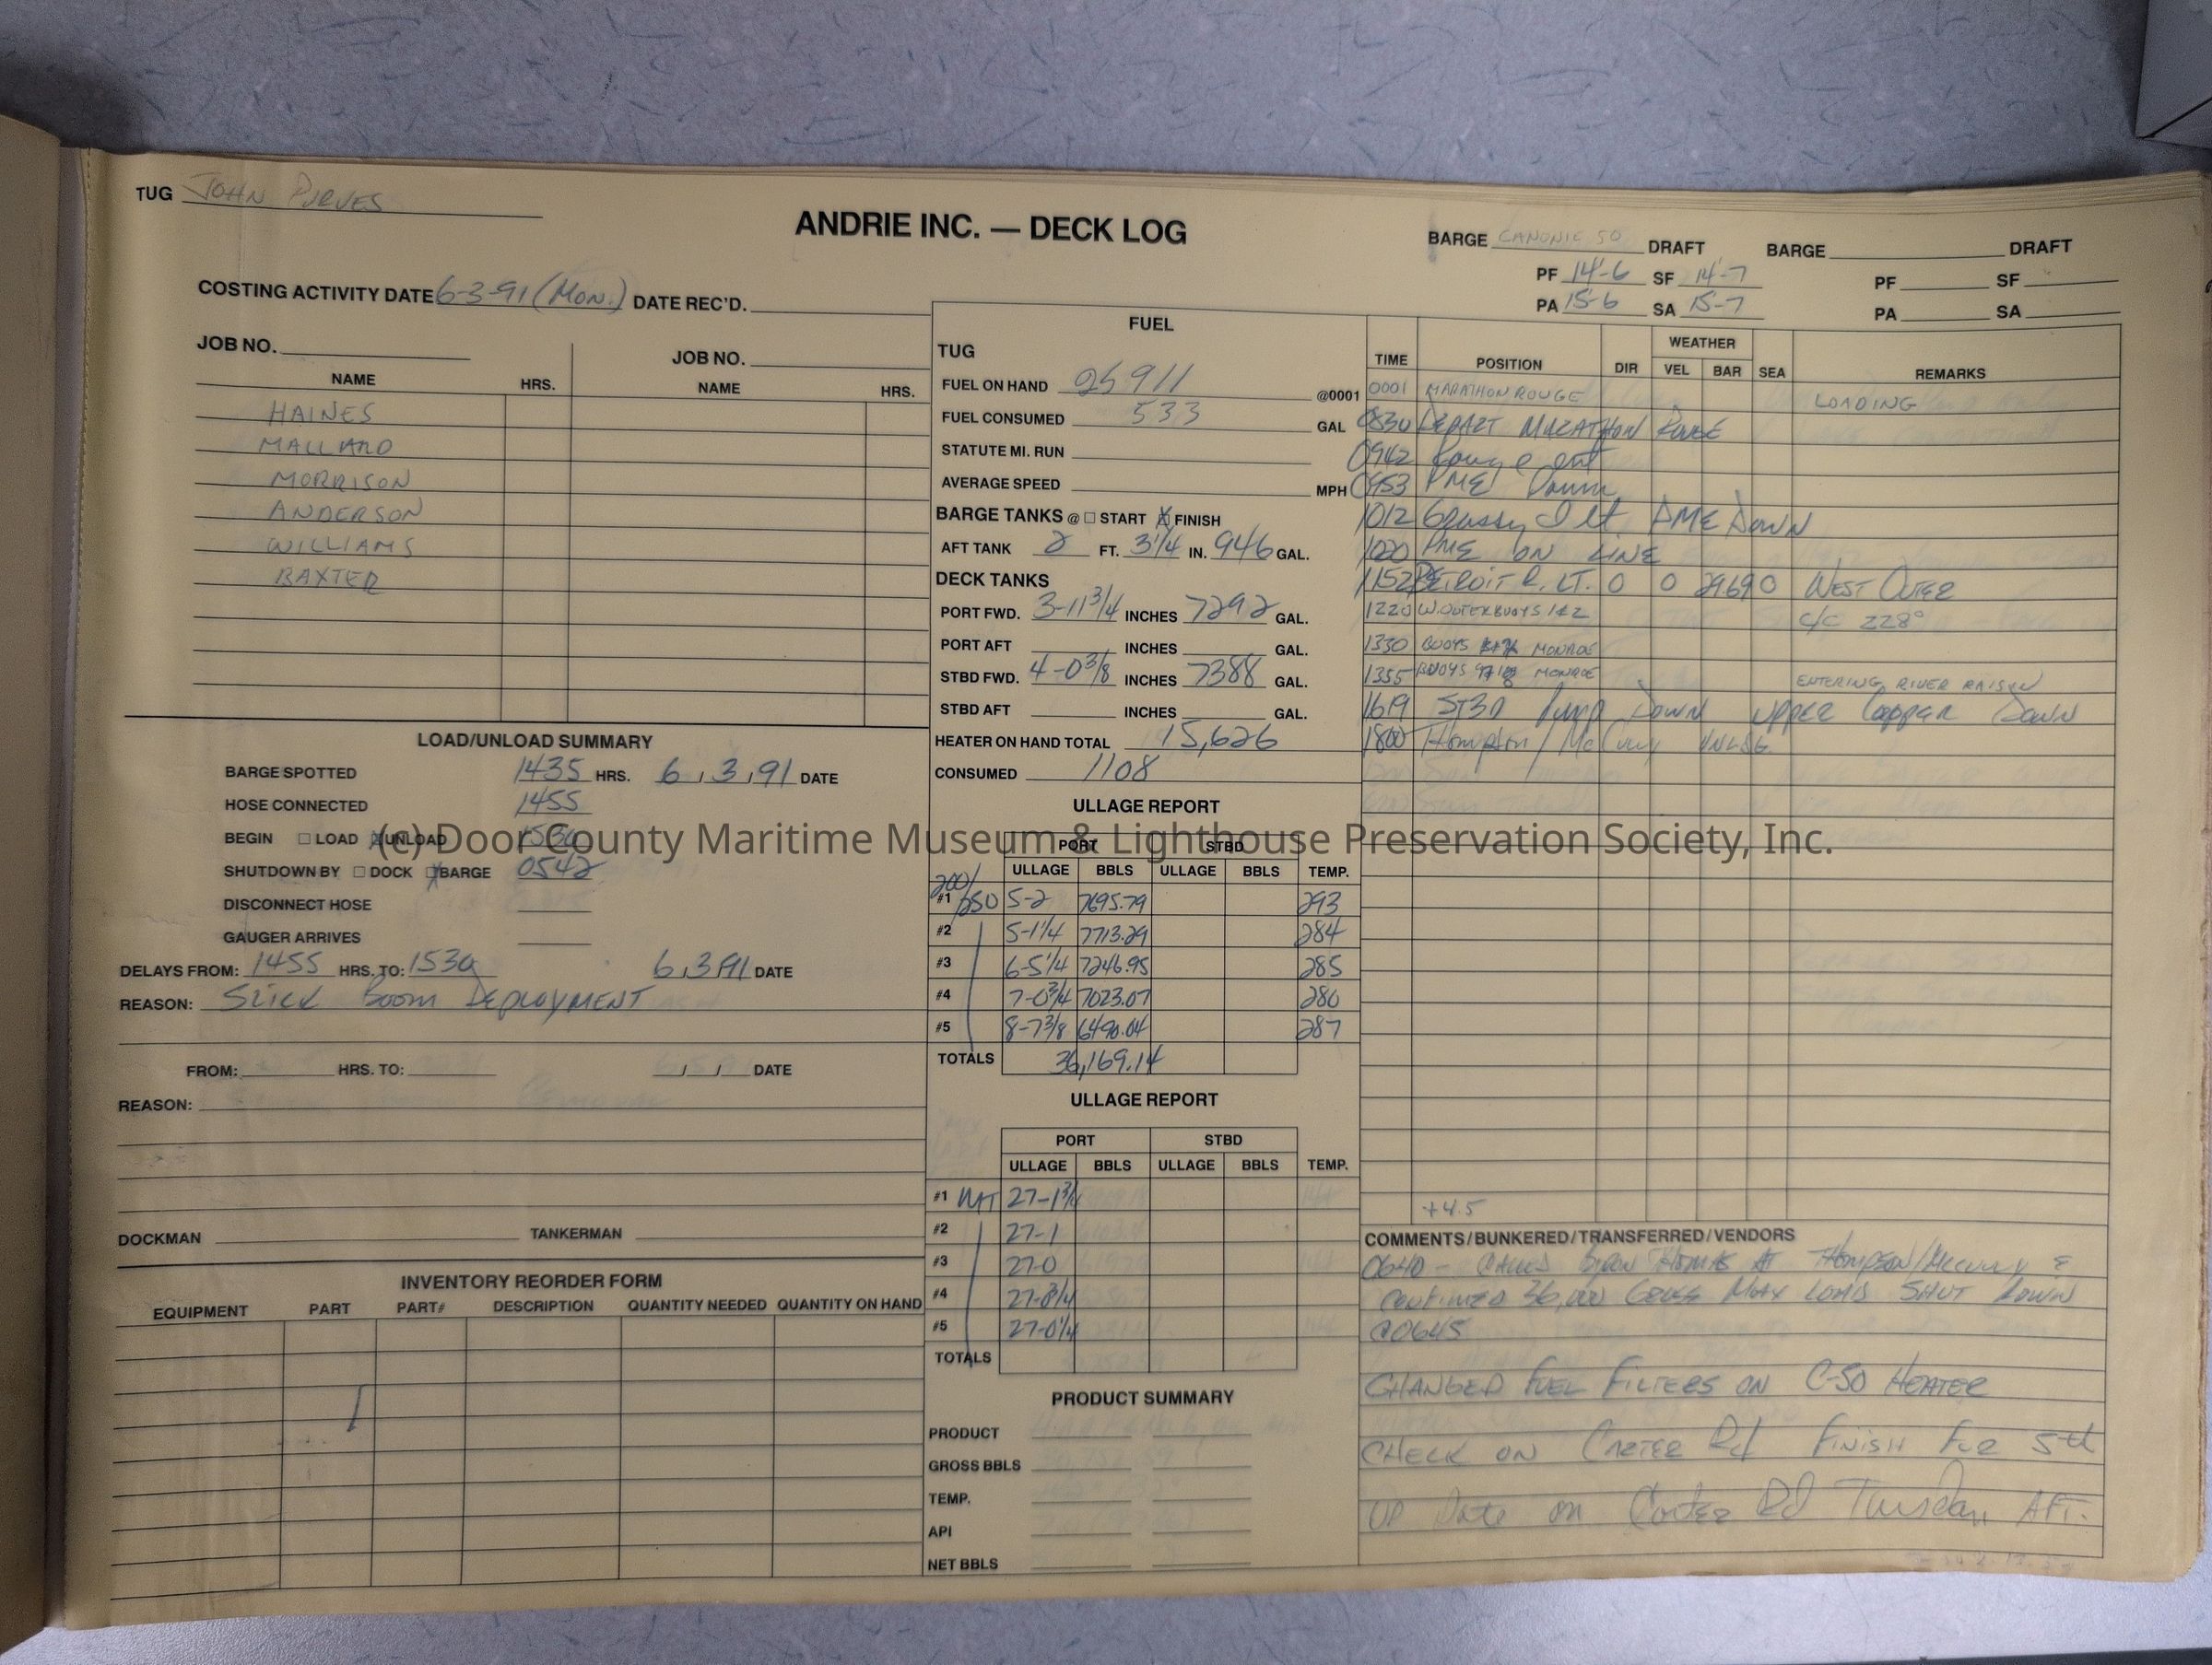 TUG JOHN PURVES
ANDRIE INC. — DECK LOG
BARGE CANONIE 50 DRAFT BARGE DRAFT
PF 14'-6 SF 14'-7 PF SF
PA 15-6 SA 15-7 PA SA
COSTING ACTIVITY DATE 6-3-91 (MON.) DATE REC'D.
JOB NO. JOB NO.
NAME HRS. NAME HRS.
HAINES
MALLARD
MORRISON
ANDERSON
WILLIAMS
BAXTER
LOAD/UNLOAD SUMMARY
BARGE SPOTTED 1435 HRS. 6/3/91 DATE
HOSE CONNECTED 1455
BEGIN □ LOAD ☒ UNLOAD 1530
SHUTDOWN BY □ DOCK ☒ BARGE 0542
DISCONNECT HOSE
GAUGER ARRIVES
DELAYS FROM: 1455 HRS. TO: 1530 6/3/91 DATE
REASON: SLICK BOOM DEPLOYMENT
FROM: HRS. TO: / / DATE
REASON:
DOCKMAN TANKERMAN
INVENTORY REORDER FORM
EQUIPMENT PART PART# DESCRIPTION QUANTITY NEEDED QUANTITY ON HAND
FUEL
TUG
FUEL ON HAND 25911 @0001
FUEL CONSUMED 533 GAL
STATUTE MI. RUN
AVERAGE SPEED MPH
BARGE TANKS @ □ START ☒ FINISH
AFT TANK 2 FT. 3 1/4 IN. 946 GAL.
DECK TANKS
PORT FWD. 3-11 3/4 INCHES 7292 GAL.
PORT AFT INCHES GAL.
STBD FWD. 4-0 3/8 INCHES 7388 GAL.
STBD AFT INCHES GAL.
HEATER ON HAND TOTAL 15,626
CONSUMED 1108
ULLAGE REPORT
PORT STBD
ULLAGE BBLS ULLAGE BBLS TEMP.
200/
#1 250 5-2 7695.79 293
#2 5-1 1/4 7713.29 284
#3 6-5 1/4 7246.95 285
#4 7-0 3/4 7023.07 280
#5 8-7 3/8 6490.04 287
TOTALS 36,169.14
ULLAGE REPORT
PORT STBD
ULLAGE BBLS ULLAGE BBLS TEMP.
#1 MT 27-1 3/4
#2 27-1
#3 27-0
#4 27-0 1/4
#5 27-0 1/4
TOTALS
PRODUCT SUMMARY
PRODUCT
GROSS BBLS
TEMP.
API
NET BBLS
WEATHER
TIME POSITION DIR VEL BAR SEA REMARKS
0001 MARATHON ROUGE LOADING
0830 DEPART MARATHON ROUGE
0942 Rouge ent
0953 PME Down
1012 Grassy I lt PME DOWN
1020 PME ON LINE
1152 DETROIT R. LT. 0 0 2969 0 WEST OUTER
1220 W. OUTER BUOYS 1&2 C/C 228°
1330 BUOYS MONROE
1355 BUOYS MONROE ENTERING RIVER RAISIN
1619 STBD Pump DOWN UPPER Copper DOWN
1800 Thompson/McCully UNLDG
+4.5
COMMENTS/BUNKERED/TRANSFERRED/VENDORS
0640 - CALLED AT THOMPSON/McCully &
CONFIRMED 36,000 GROSS MAX LOAD SHUT DOWN
@0645
CHANGED FUEL FILTERS ON C-50 HEATER
CHECK ON CARTER Rd FINISH FOR 5th
UP Date on Carter Rd Tuesday AFT.
(c) Door County Maritime Museum & Lighthouse Preservation Society, Inc.